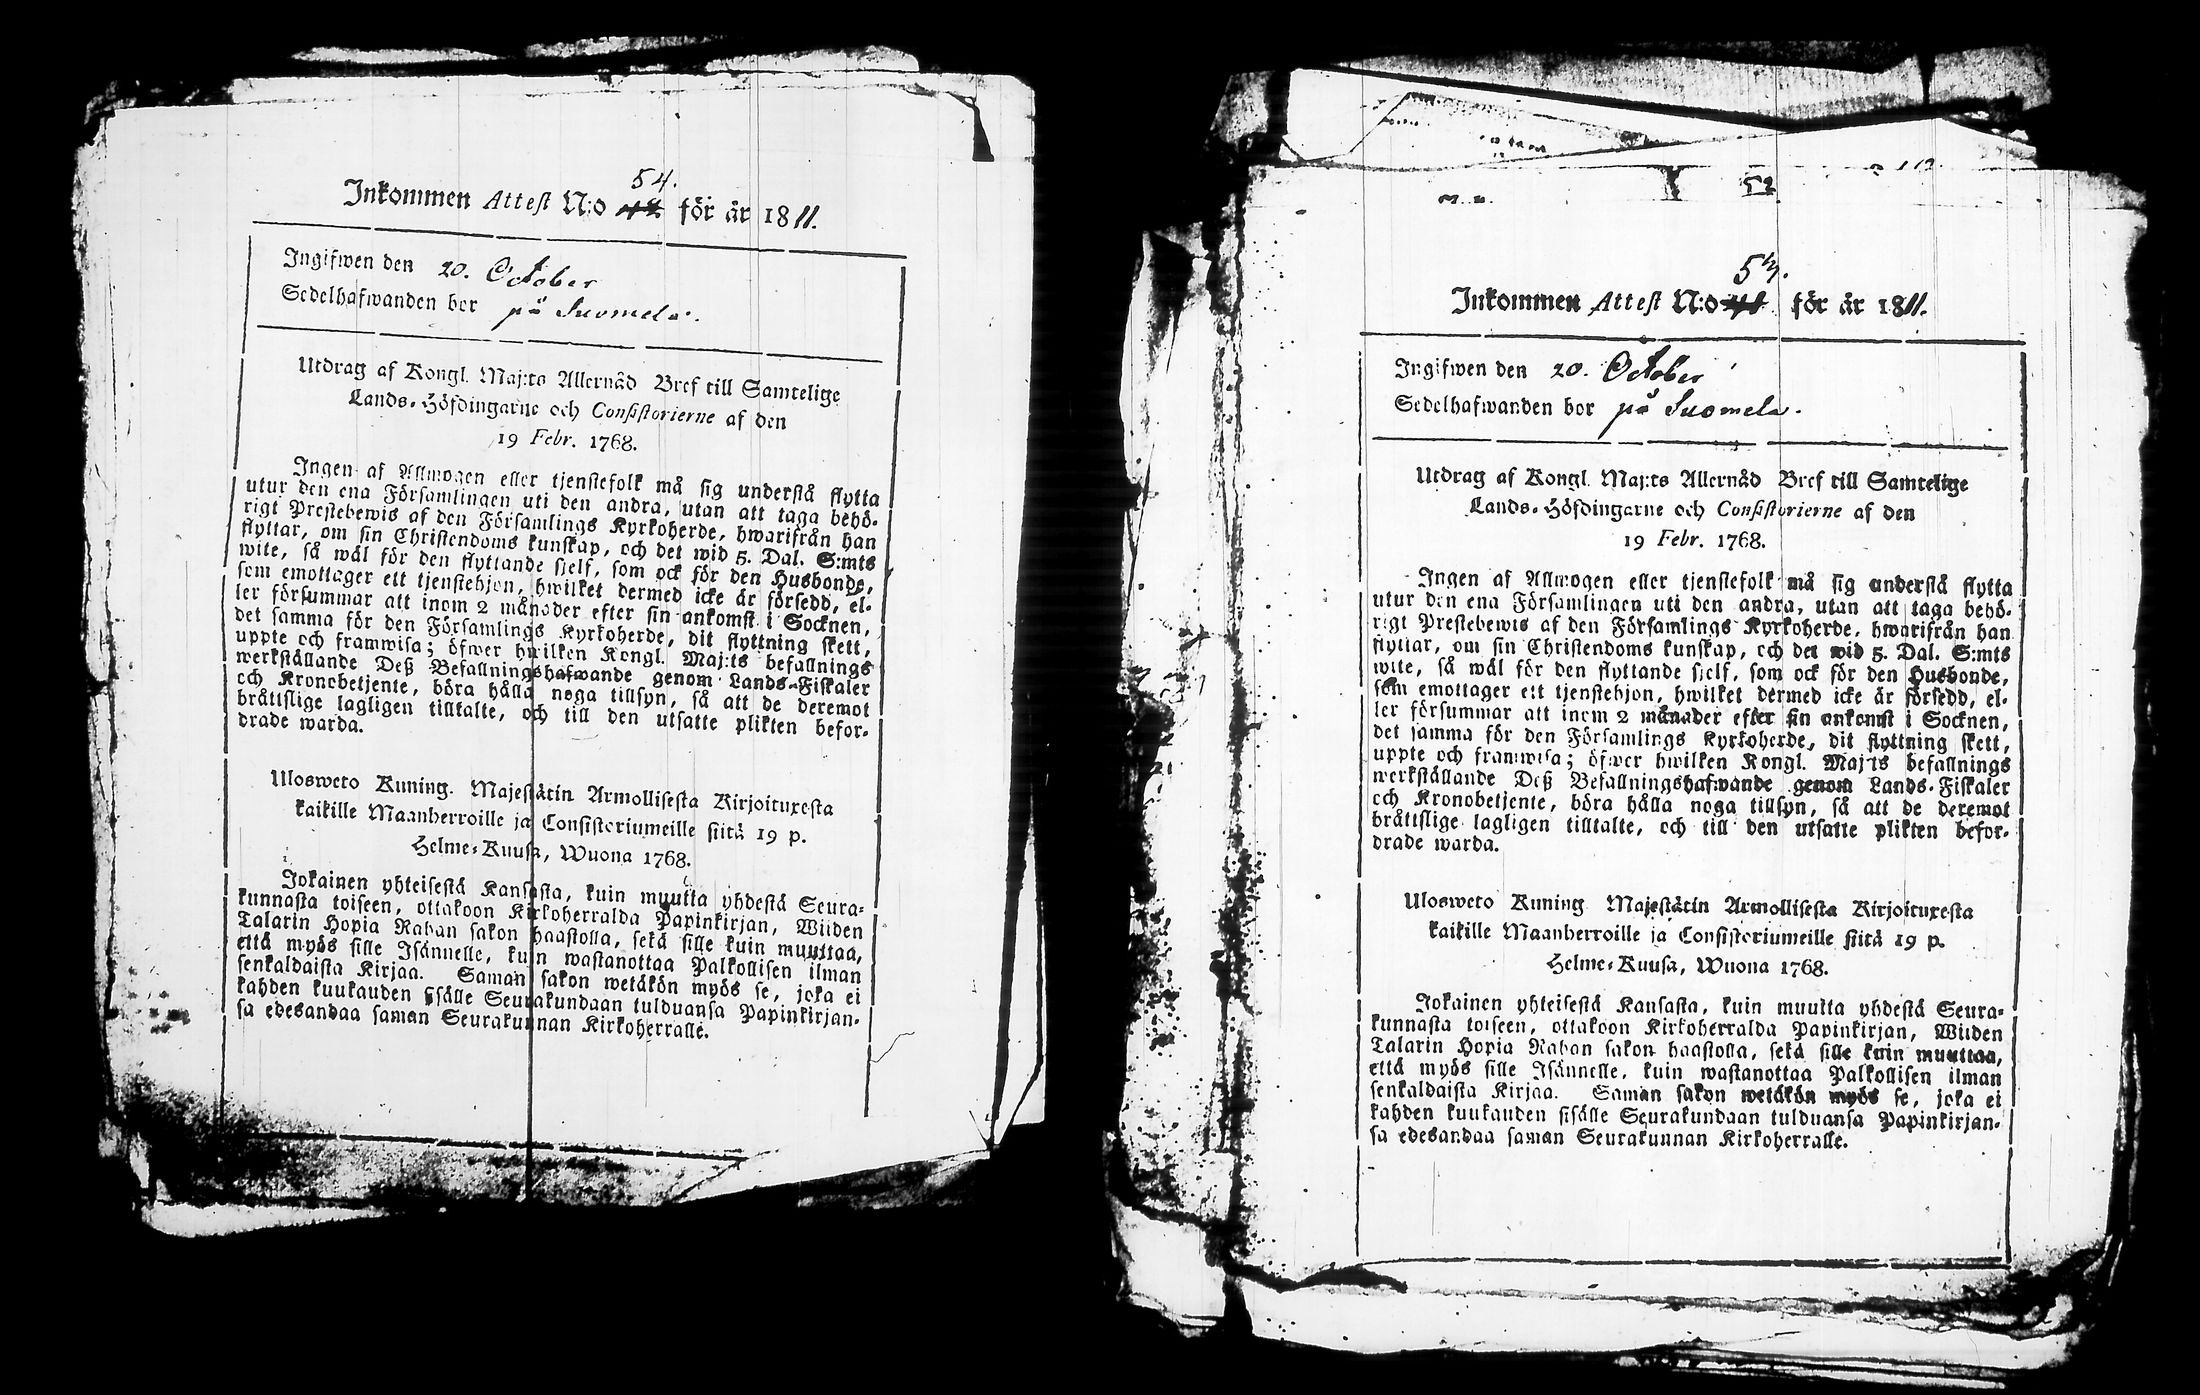 54.
Inkommen Attest N:o för år 1811.
Ingifwen den 20. October
Sedelhafwanden bor på Suomela.
Utdrag af Kongl. Maj:ts Allernåd Bref till Samtelige
Lands-Höfdingarne och Consistorierne af den
19 Febr. 1768.
Ingen af Allmogen eller tjenstefolk må sig understå flytta
utur den ena Församlingen uti den andra, utan att taga behö-
rigt Prestebewis af den Församlings Kyrkoherde, hwarifrån han
flyttar, om sin Christendoms kunskap, och det wid 5. Dal. S:mts
wite, så wäl för den flyttande sjelf, som ock för den Husbonde,
som emottager ett tjenstehjon, hwilket dermed icke är försedd, el-
ler försummar att inom 2 månader efter sin ankomst i Socknen,
det samma för den Församlings Kyrkoherde, dit flyttning skett,
uppte och framwisa; öfwer hwilken Kongl. Maj:ts befallnings
werkställande Deß Befallningshafwande genom Lands-Fiskaler
och Kronobetjente, böra hålla noga tillsyn, så att de deremot
bråttslige lagligen tilltalte, och till den utsatte plikten befor-
drade warda.
Ulosweto Kuning. Majestätin Armollisesta Kirjoituxesta
kaikille Maanherroille ja Consistoriumeille siitä 19 p.
Helme-Kuusa, Wuona 1768.
Jokainen yhteisestä Kansasta, kuin muutta yhdestä Seura-
kunnasta toiseen, ottakoon Kirkoherralda Papinkirjan, Wiiden
Talarin Hopia Rahan sakon haastolla, sekä sille kuin muuttaa,
että myös sille Isännelle, kuin wastanottaa Palkollisen ilman
senkaldaista Kirjaa. Saman sakon wetäkön myös se, joka ei
kahden kuukauden sisälle Seurakundaan tulduansa Papinkirjan-
sa edesandaa saman Seurakunnan Kirkoherralle.
52
54.
Inkommen Attest N:o för år 1811.
Ingifwen den 20. October
Sedelhafwanden bor på Suomela.
Utdrag af Kongl. Maj:ts Allernåd Bref till Samtelige
Lands-Höfdingarne och Consistorierne af den
19 Febr. 1768.
Ingen af Allmogen eller tjenstefolk må sig understå flytta
utur den ena Församlingen uti den andra, utan att taga behö-
rigt Prestebewis af den Församlings Kyrkoherde, hwarifrån han
flyttar, om sin Christendoms kunskap, och det wid 5. Dal. S:mts
wite, så wäl för den flyttande sjelf, som ock för den Husbonde,
som emottager ett tjenstehjon, hwilket dermed icke är försedd, el-
ler försummar att inom 2 månader efter sin ankomst i Socknen,
det samma för den Församlings Kyrkoherde, dit flyttning skett,
uppte och framwisa; öfwer hwilken Kongl. Maj:ts befallnings
werkställande Deß Befallningshafwande genom Lands-Fiskaler
och Kronobetjente, böra hålla noga tillsyn, så att de deremot
bråttslige lagligen tilltalte, och till den utsatte plikten befor-
drade warda.
Ulosweto Kuning Majestätin Armollisesta Kirjoituxesta
kaikille Maanherroille ja Consistoriumeille siitä 19 p.
Helme-Kuusa, Wuona 1768.
Jokainen yhteisestä Kansasta, kuin muutta yhdestä Seura-
kunnasta toiseen, ottakoon Kirkoherralda Papinkirjan, Wiiden
Talarin Hopia Rahan sakon haastolla, sekä sille kuin muuttaa,
että myös sille Isännelle, kuin wastanottaa Palkollisen ilman
senkaldaista Kirjaa. Saman sakon wetäkön myös se, joka ei
kahden kuukauden sisälle Seurakundaan tulduansa Papinkirjan-
sa edesandaa saman Seurakunnan Kirkoherralle.